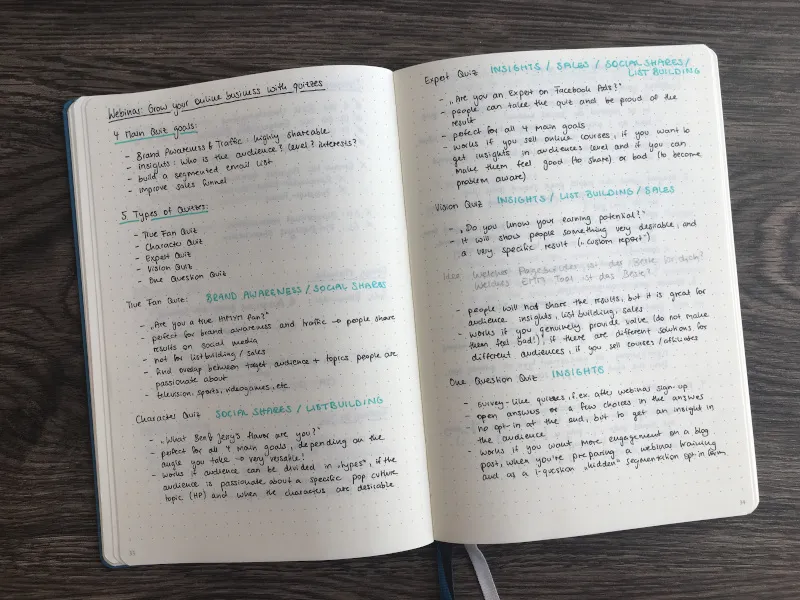 Webinar: Grow your online business with quizzes
4 Main Quiz goals:
- Brand Awareness & Traffic: highly shareable
- insights: Who is the audience? Level? interests?
- build a segmented email list
- improve sales funnel
5 Types of Quizzes:
- True Fan Quiz
- Character Quiz
- Expert Quiz
- Vision Quiz
- One Question Quiz
True Fan Quiz: BRAND AWARENESS / SOCIAL SHARES
- „Are you a true HIMYM Fan?"
- perfect for brand awareness and traffic → people share
results on social media
- not for listbuilding / sales
- find overlap between target audience + topics people are
passionate about
- television, sports, videogames, etc
Character Quiz SOCIAL SHARES / LISTBUILDING
- „What Ben & Jerry's flavor are you?"
- perfect for all 4 main goals, depending on the
angle you take → very versatile!
- works if audience can be divided in „types", if the
audience is passionate about a specific pop culture
topic (HP) and when the characters are desirable
33
Expert Quiz INSIGHTS / SALES / SOCIAL SHARES /
LIST BUILDING
- „Are you an Expert on Facebook Ads?"
- people can take the quiz and be proud of the
result
- perfect for all 4 main goals
- works if you sell online courses, if you want to
get insights in audiences level and if you can
make them feel good (to share) or bad (to become
problem aware)
Vision Quiz INSIGHTS / LIST BUILDING / SALES
- „Do you know your earning potential?"
- it will show people something very desirable, and
a very specific result („custom report")
Welcher Pagebuilder ist der Beste für dich?
Welches Email Tool ist das Beste?
- people will not share the results, but it is great for
audience insights, list building, sales
- works if you genuinely provide value (do not make
them feel bad!), if there are different solutions for
different audiences, if you sell courses / affiliates
One Question Quiz INSIGHTS
- survey-like quizzes, f.ex. after webinar sign-up
- open answers or a few choices in the answers
- no opt-in at the end, but to get an insight in
the audience
- works if you want more engagement on a blog
post, when you're preparing a webinar/training
and as a 1-question „hidden" segmentation opt-in form